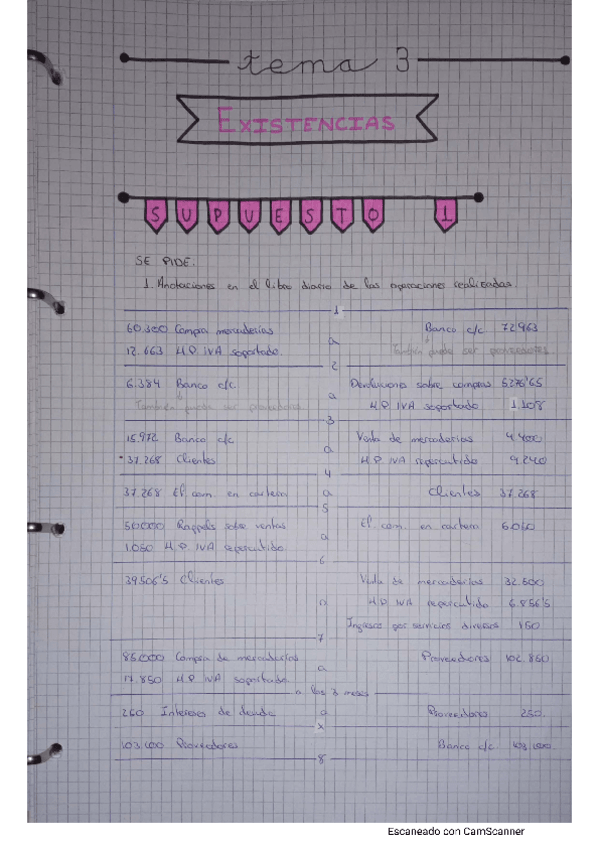 tema 3
EXISTENCIAS
SUPUESTO 1
SE PIDE:
1. Anotaciones en el libro diario de las operaciones realizadas.
1
60.300 Compra mercaderías Banco c/c 72.963
12.663 H.P. IVA soportado. a También puede ser proveedores
2
6.384 Banco c/c Devoluciones sobre compras 5276'65
También pueden ser proveedores a H.P. IVA soportado 1.108
3
15.972 Banco c/c Venta de mercaderías 4.400
37.268 Clientes a H.P. IVA repercutido 9.240
4
37.268 Ef. com. en cartera a Clientes 37.268
5
Rappels sobre ventas Ef. com. en cartera
1.050 H.P. IVA repercutido a
6
39.506'5 Clientes Venta de mercaderías 32.500
a H.P. IVA repercutido 6.856'5
Ingresos por servicios diversos 150
7
85.000 Compra de mercaderías Proveedores 102.850
17.850 H.P. IVA soportado. a
a los 3 meses
Intereses de deuda a Proveedores 250.
x
Proveedores Banco c/c
8
Escaneado con CamScanner